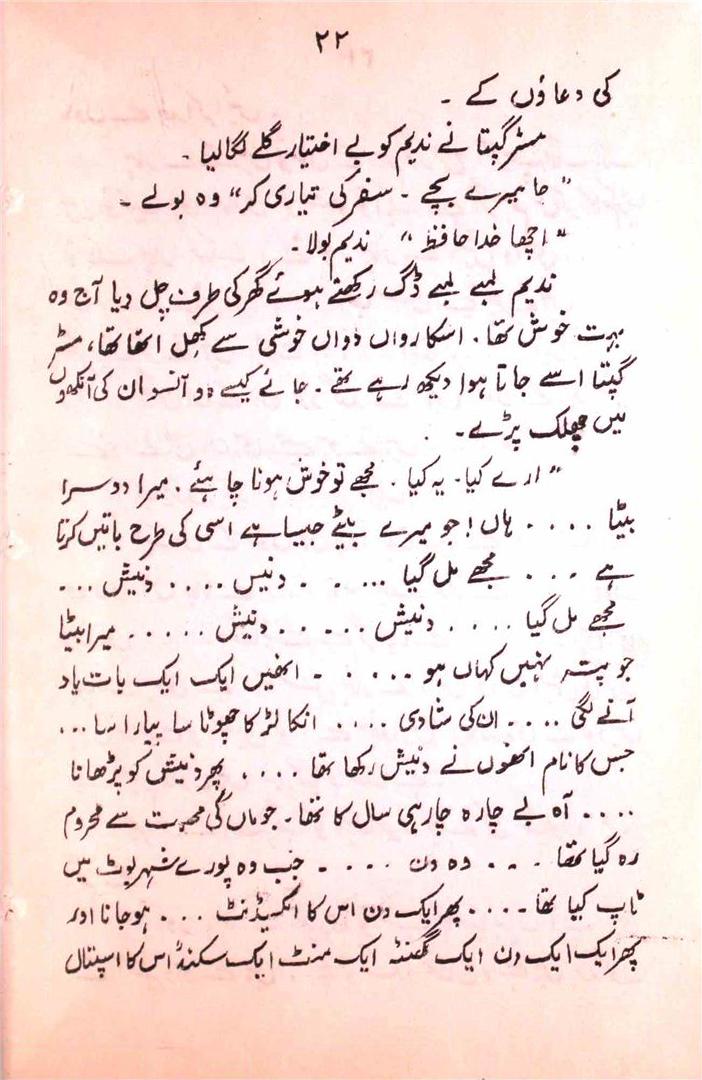 ۲۲
کی دعاؤں کے ۔
مسٹر گپتا نے ندیم کو بے اختیار گلے لگا لیا ۔
” جا میرے بچے ۔ سفر کی تیاری کر “ وہ بولے ۔
” اچھا خدا حافظ “ ندیم بولا ۔
ندیم لمبے لمبے ڈگ رکھتے ہوئے گھر کی طرف چل دیا آج وہ
بہت خوش تھا ۔ اسکا رواں دواں خوشی سے کھل اٹھا تھا ، مسٹر
گپتا اسے جاتا ہوا دیکھ رہے تھے ۔ جانے کیسے دو آنسو ان کی آنکھوں
میں چھلک پڑے ۔
” ارے کیا ۔ یہ کیا ۔ مجھے تو خوش ہونا چاہئے ۔ میرا دوسرا
بیٹا . . . . ہاں ! جو میرے بیٹے جیسا ہے اسی کی طرح باتیں کرتا
ہے . . . مجھے مل گیا . . . . . دنیس . . . . دنیش . . .
مجھے مل گیا . . . . دنیش . . . . . دنیش . . . . . میرا بیٹا
جو پتہ نہیں کہاں ہو . . . . . ۔ انھیں ایک ایک بات یاد
آنے لگی . . . . ان کی شادی . . . . انکا لڑکا چھوٹا سا پیارا سا . . .
جس کا نام انھوں نے دنیش رکھا تھا . . . . پھر دنیش کو پڑھانا
. . . . آہ بے چارہ چار ہی سال کا تھا ۔ جو ماں کی محبت سے محروم
رہ گیا تھا . . . وہ دن . . . . جب وہ پورے شہر یوٹ میں
ٹاپ کیا تھا . . . . پھر ایک دن اس کا اکسیڈنٹ . . . ہو جانا اور
پھر ایک ایک دن ایک گھنٹہ ایک منٹ ایک سکنڈ اس کا اسپتال